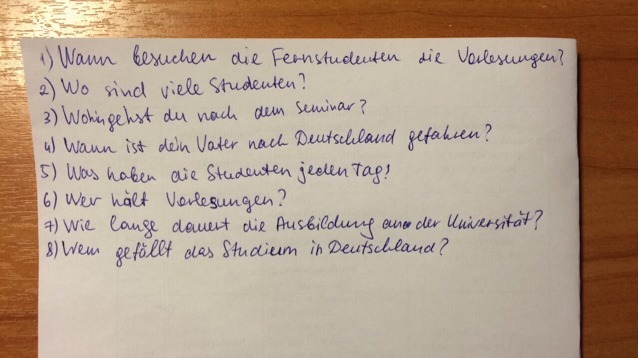 1) Wann besuchen die Fernstudenten die Vorlesungen?
2) Wo sind viele Studenten?
3) Wohin gehst du nach dem Seminar?
4) Wann ist dein Vater nach Deutschland gefahren?
5) Was haben die Studenten jeden Tag!
6) Wer hält Vorlesungen?
7) Wie lange dauert die Ausbildung an der Universität?
8) Wem gefällt das Studium in Deutschland?